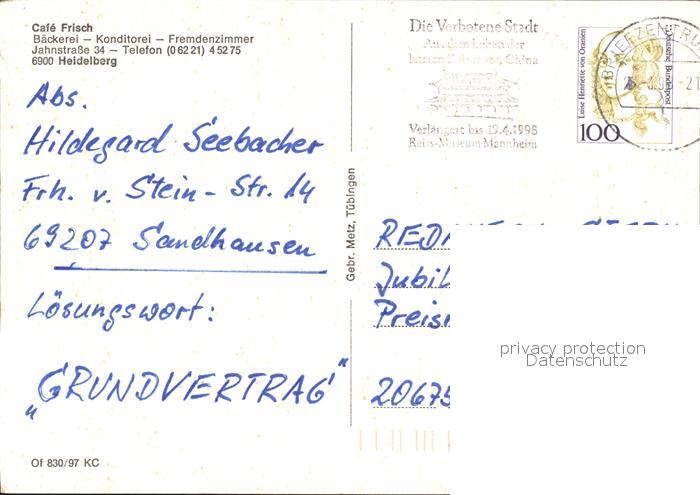 Café Frisch
Bäckerei – Konditorei – Fremdenzimmer
Jahnstraße 34 – Telefon (06221) 45275
6900 Heidelberg
Abs.
Hildegard Seebacher
Frh. v. Stein - Str. 14
69207 Sandhausen
Lösungswort:
„GRUNDVERTRAG"
Of 830/97 KC
Gebr. Metz, Tübingen
Die Verbotene Stadt
Aus dem Leben der
letzten Kaiser von China
Verlängert bis 19.4.1998
Reiss-Museum Mannheim
Luise Henriette von Oranien
Deutsche Bundespost
100
BRIEFZENTRUM
Jubil
20675
privacy protection
Datenschutz